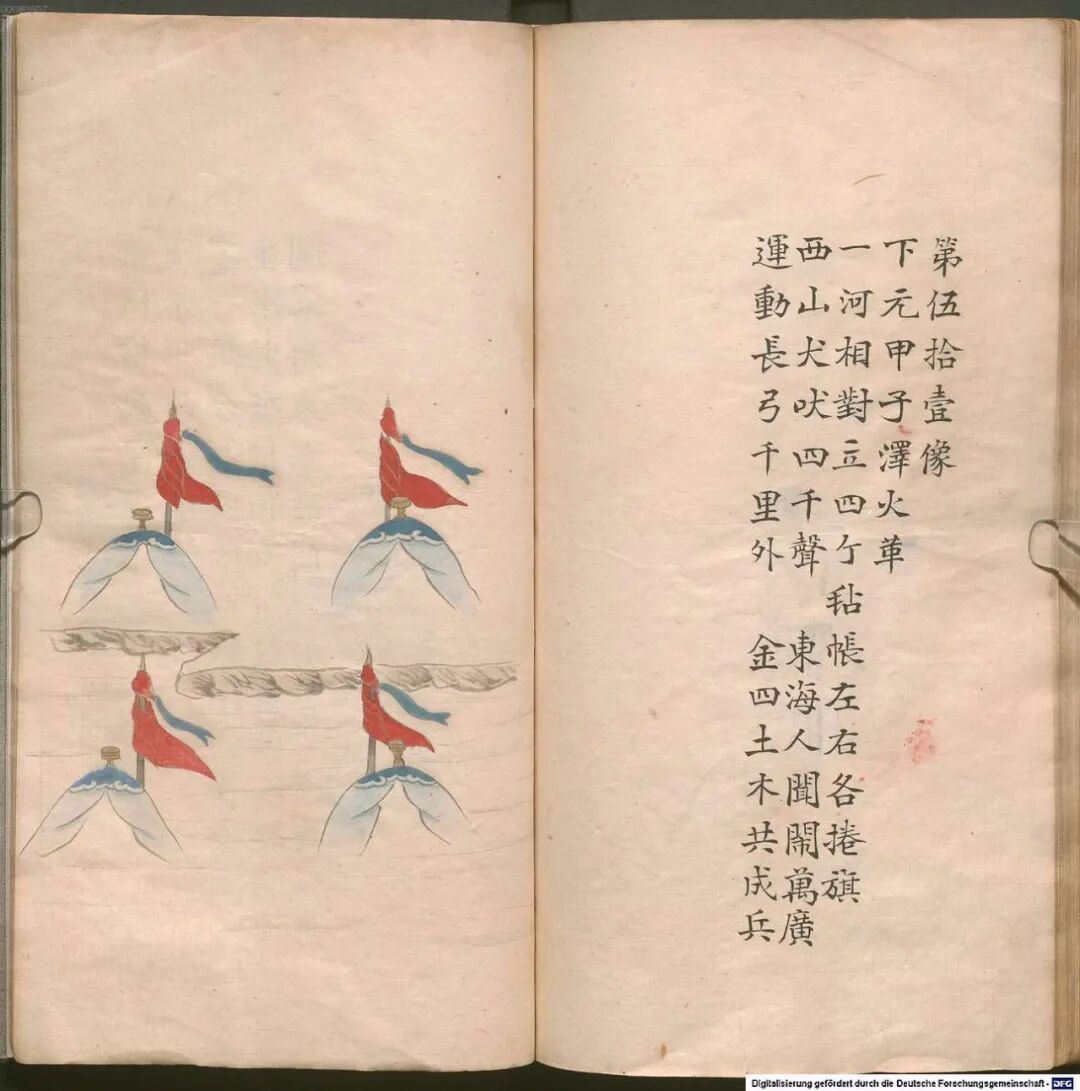 第伍拾壹像
下元甲子澤火革
一河相對立四个毡帳左右各捲旗
西山犬吠四千聲 東海人聞鬧萬廣
運動長弓千里外 金四土木共成兵
00080607
Digitalisierung gefördert durch die Deutsche Forschungsgemeinschaft - DFG